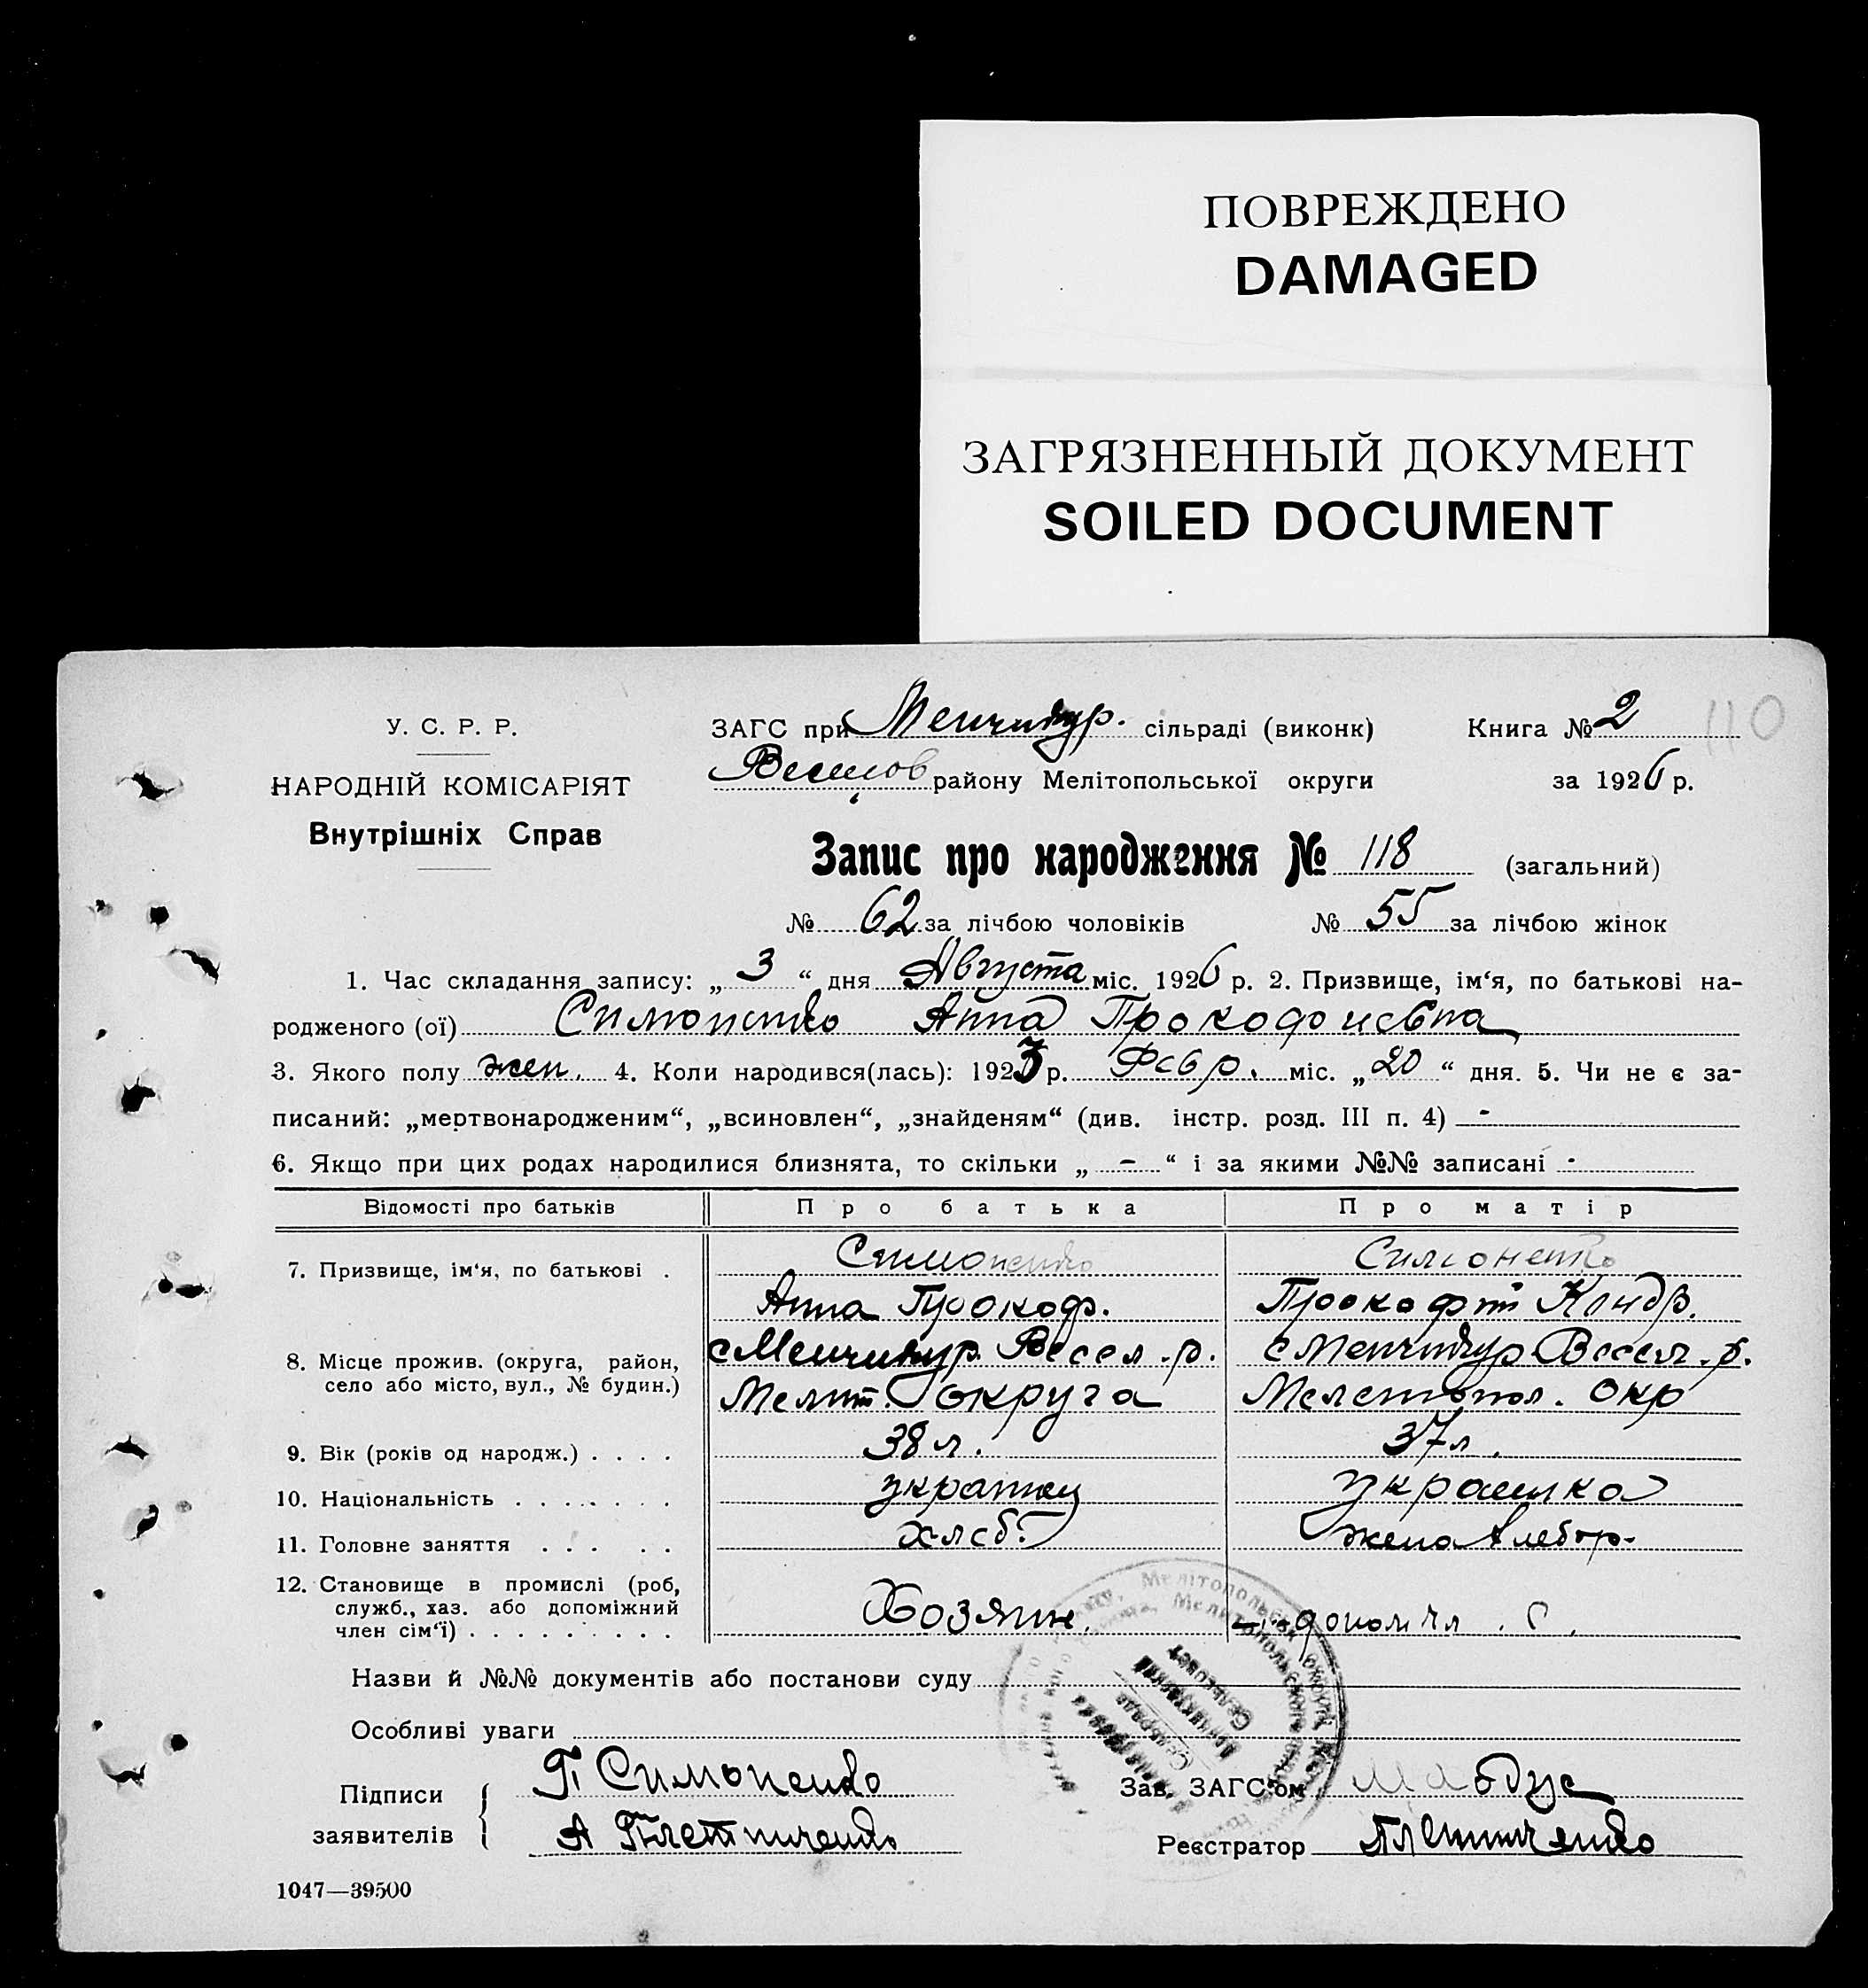 ПОВРЕЖДЕНО
DAMAGED
ЗАГРЯЗНЕННЫЙ ДОКУМЕНТ
SOILED DOCUMENT
110
У. С. Р. Р.
ЗАГС при Менчикур. сільраді (виконк) Книга № 2
НАРОДНІЙ КОМІСАРІЯТ
Веселов району Мелітопольської округи за 1926 р.
Внутрішніх Справ
Запис про народження № 118 (загальний)
№ 62 за лічбою чоловіків № 55 за лічбою жінок
1. Час складання запису: „ 3 “ дня Августа міс. 1926 р. 2. Призвище, ім‘я, по батькові на-
родженого (ої) Симоненко Анна Прокофиевна
3. Якого полу жен. 4. Коли народився(лась): 1923 р. Февр. міс. „ 20 “ дня. 5. Чи не є за-
писаний: „мертвонародженим“, „всиновлен“, „знайденям“ (див. інстр. розд. III п. 4) -
6. Якщо при цих родах народилися близнята, то скільки „ - “ і за якими №№ записані -
Відомості про батьків Про батька Про матір
7. Призвище, ім‘я, по батькові . Симоненко Симоненко
Анна Прокоф. Прокофий Кондр.
8. Місце прожив. (округа, район, с Менчикур Весел. р. с Менчикур Весел. р.
село або місто, вул., № будин.) Мелит. округа Мелетопол. окр
9. Вік (років од народж.) . . . . 38 л. 37 л.
10. Національність . . . . . . . украинец украинка
11. Головне заняття . . . . . хлеб. жена хлебор.
12. Становище в промислі (роб,
служб., хаз. або допоміжний Хозяин. - допом чл. с.
член сім‘ї) . . . . . . . . .
Назви й №№ документів або постанови суду
Особливі уваги
Підписи П Симоненко Зав. ЗАГС‘ом
заявителів А Плетниченко Реєстратор Плетниченко
1047—39500